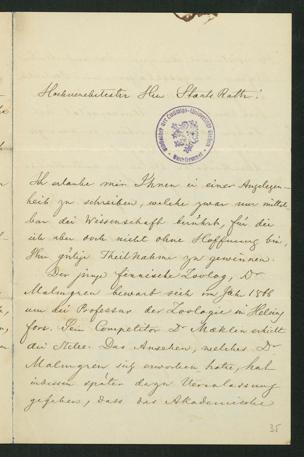 Hochverehrtester Herr Staats Rath!
Ich erlaube mir Ihnen in einer Angelegen-
heit zu schreiben, welche zwar nur mittel
bar die Wissenschaft berührt, für die
ich aber doch nicht ohne Hoffnung bin,
Ihre gütige Theilnahme zu gewinnen.
Der junge finnische Zoolog, Dr
Malmgren bewarb sich im Jahr 1866
um die Professur der Zoologie in Helsing
fors. Sein Competitor Dr Mäklin erhielt
die Stelle. Das Ansehen, welches Dr
Malmgren sich erworben hatte, hat
indessen später dazu Veranlassung
gegeben, dass das Akademische
35